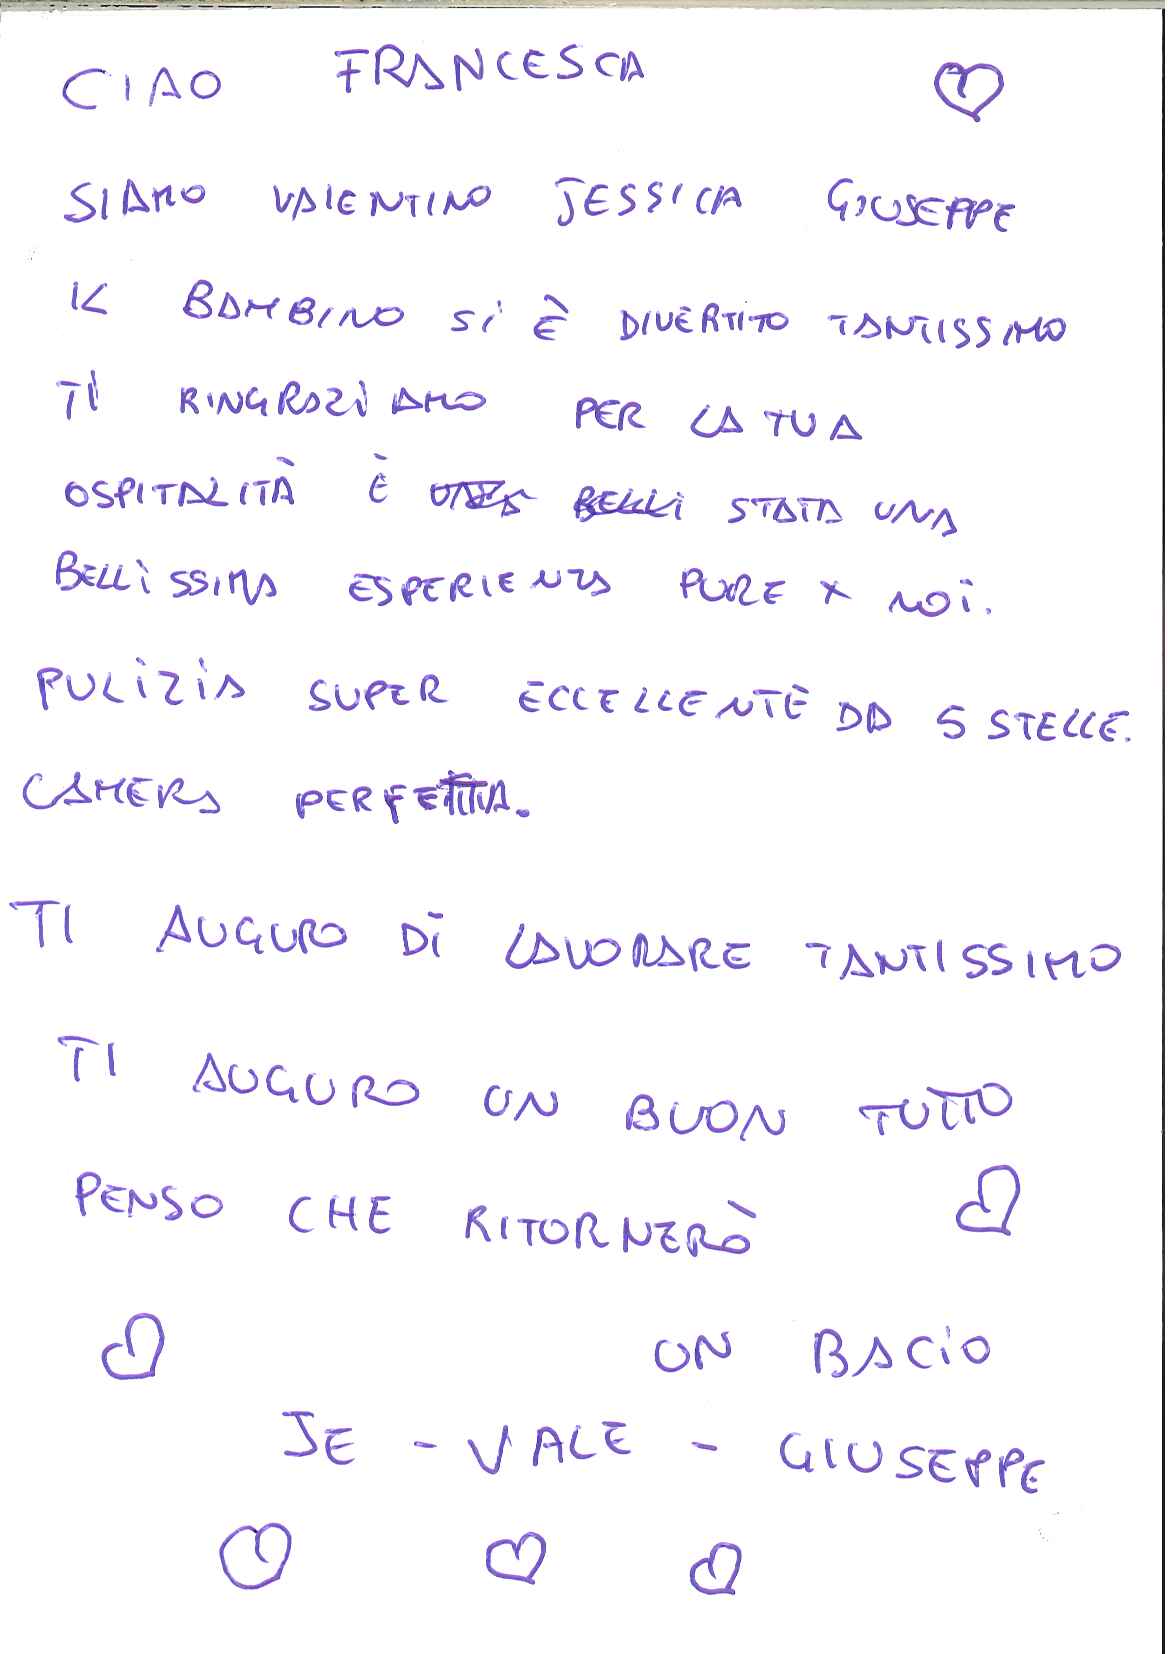 CIAO FRANCESCA
SIAMO VALENTINO JESSICA GIUSEPPE
IL BAMBINO Si È DIVERTITO TANTISSIMO
Ti RINGRAZiAMO PER LA TUA
OSPITALITÀ È STATA UNA
BELLiSSIMA ESPERIENZA PURE x NOi.
PULiZiA SUPER ECCELLENTE DA 5 STELLE.
CAMERA PERFETTA.
TI AUGURO Di LAVORARE TANTISSIMO
TI AUGURO UN BUON TUTTO
PENSO CHE RITORNERÒ
UN BACiO
JE - VALE - GIUSEPPE